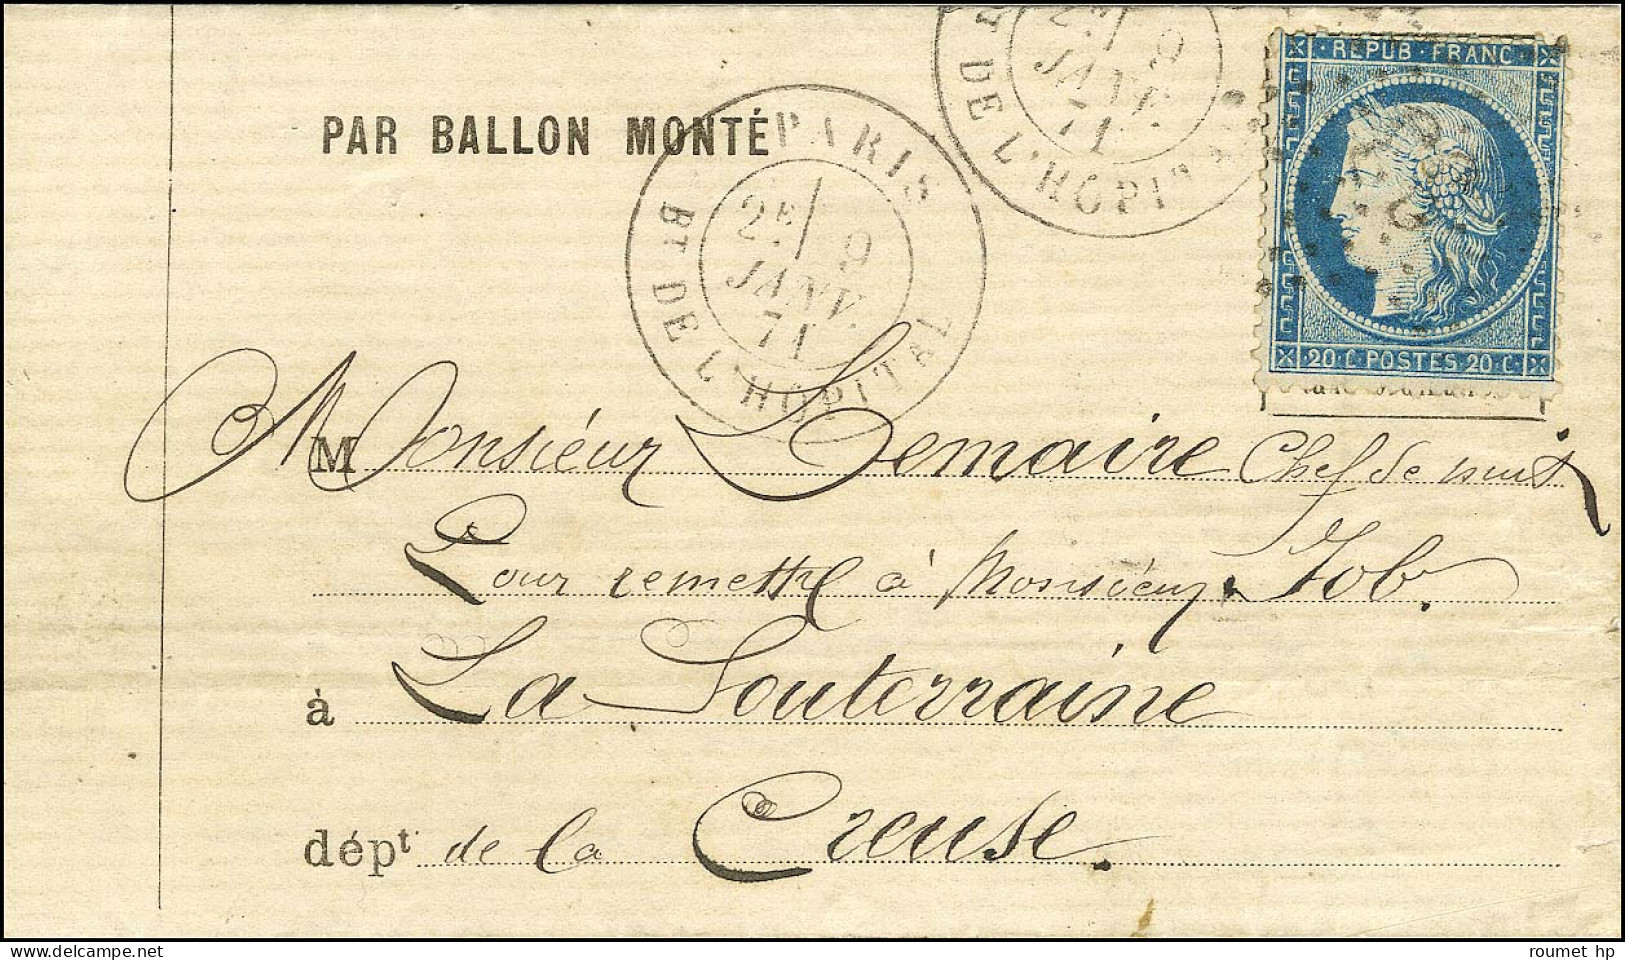 PAR BALLON MONTÉ
PARIS
2E/ 9
JANV.
71
Bt DE L'HOPITAL
2E/ 9
JANV.
71
DE L'HOPIT
· REPUB · FRANC ·
20 C · POSTES 20 C ·
M Monsieur Lemaire Chef de nuit
Pour remettre à Monsieur Job.
à La Souterraine
dépt de la Creuse.
roumet hp